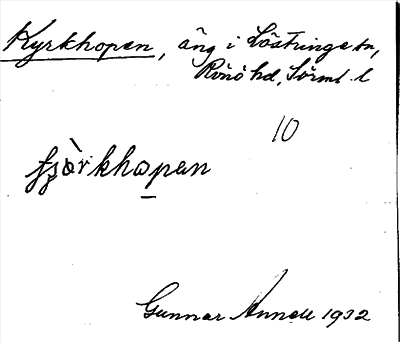 Kyrkhopen, äng i Lästringe sn,
Rönö hd, Sörml. l
10
fjòrkhopen
Gunnar Annell 1932